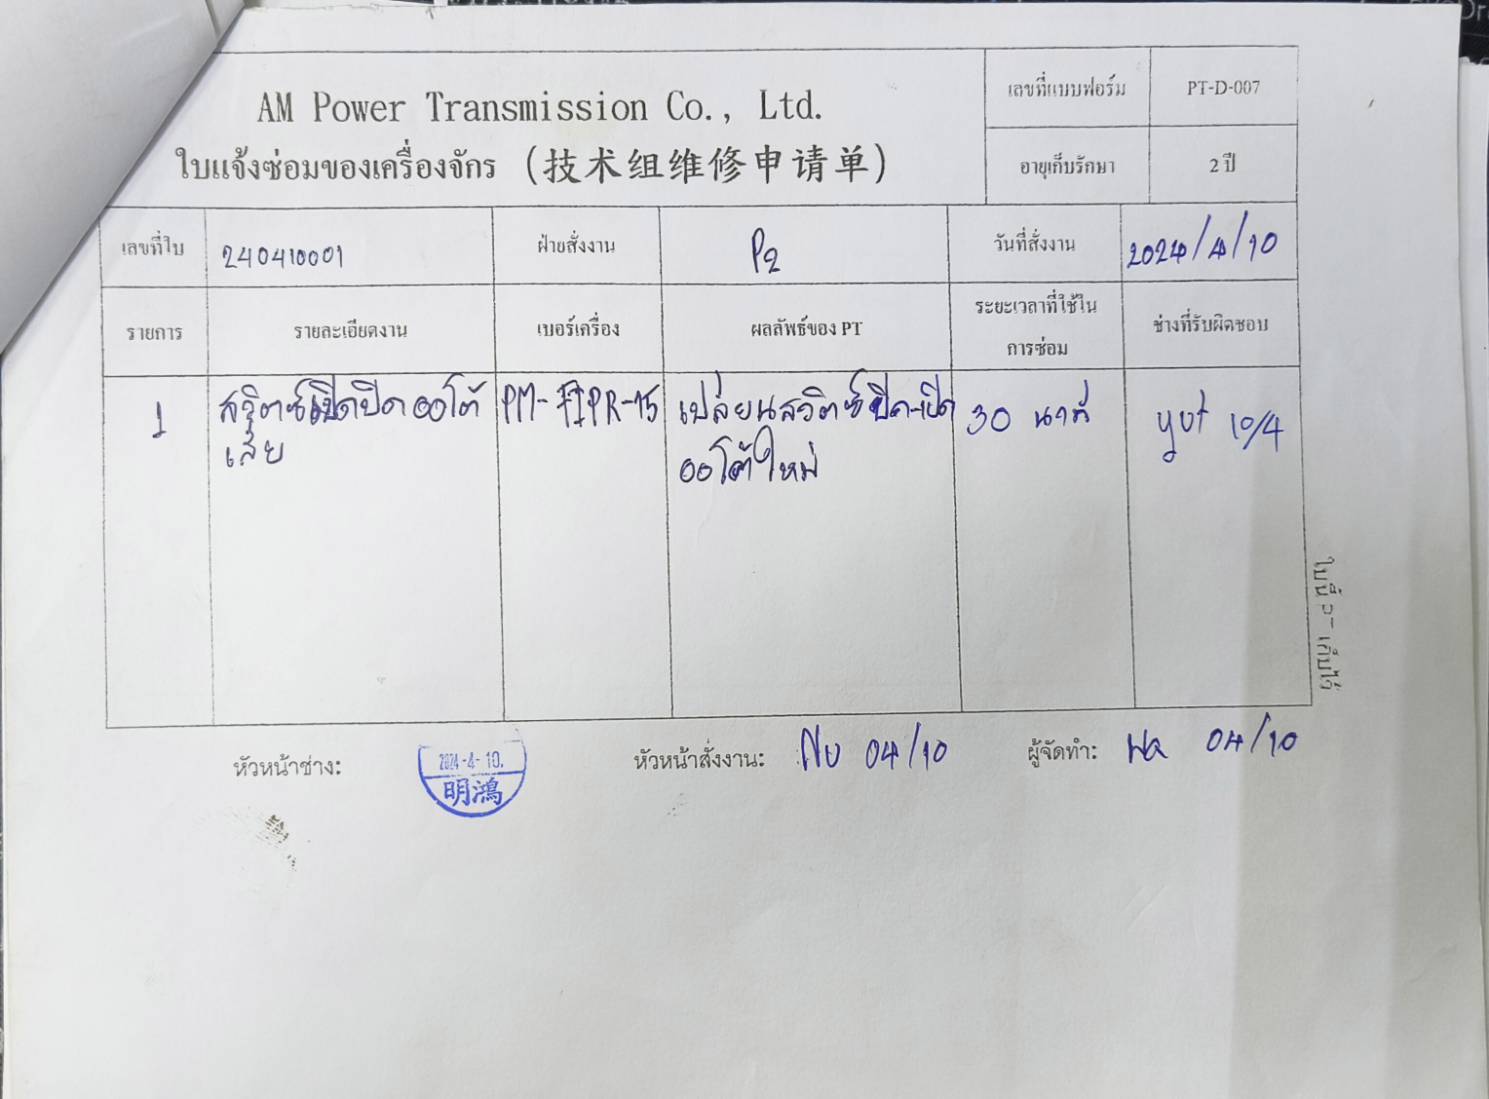 AM Power Transmission Co., Ltd.
ใบแจ้งซ่อมของเครื่องจักร (技术组维修申请单)
เลขที่แบบฟอร์ม PT-D-007
อายุเก็บรักษา 2 ปี
เลขที่ใบ 240410001 ฝ่ายสั่งงาน P2 วันที่สั่งงาน 2024/4/10
รายการ รายละเอียดงาน เบอร์เครื่อง ผลลัพธ์ของ PT ระยะเวลาที่ใช้ใน ช่างที่รับผิดชอบ
การซ่อม
1 สวิตซ์เปิดปิด ออโต้ PM- PR-15 เปลี่ยนสวิตซ์ปิด-เปิด 30 นาที yut 10/4
เสีย ออโต้ใหม่
หัวหน้าช่าง: 2024-4-10. หัวหน้าสั่งงาน: Nu 04/10 ผู้จัดทำ: 04/10
明鴻